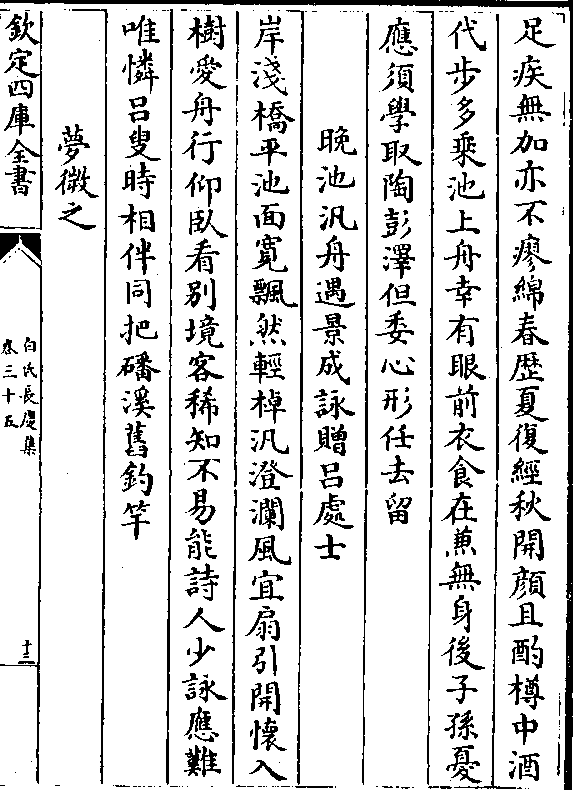 足疾無加亦不瘳綿春歴夏復經秋開顔且酌樽中酒
代步多乘池上舟幸有眼前衣食在兼無身後子孫憂
應須學取陶彭澤但委心形任去留
晚池汎舟遇景成詠贈呂處士
岸淺橋平池面寛飄然輕棹汎澄瀾風宜扇引開懷入
樹愛舟行仰臥看別境客稀知不易能詩人少詠應難
唯憐呂叟時相伴同把磻溪舊釣竿
夢微之
欽定四庫全書
白氏長慶集
卷三十五
十三